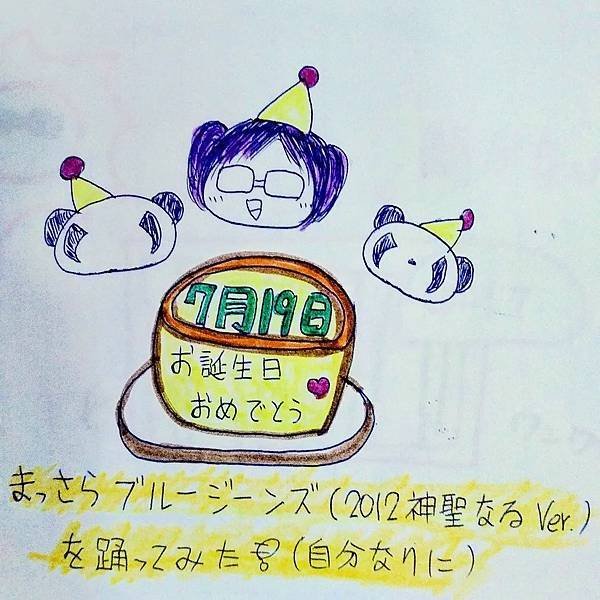 7月19日
お誕生日
おめでとう
まっさらブルージーンズ(2012神聖なるVer.)
を踊ってみた(自分なりに)